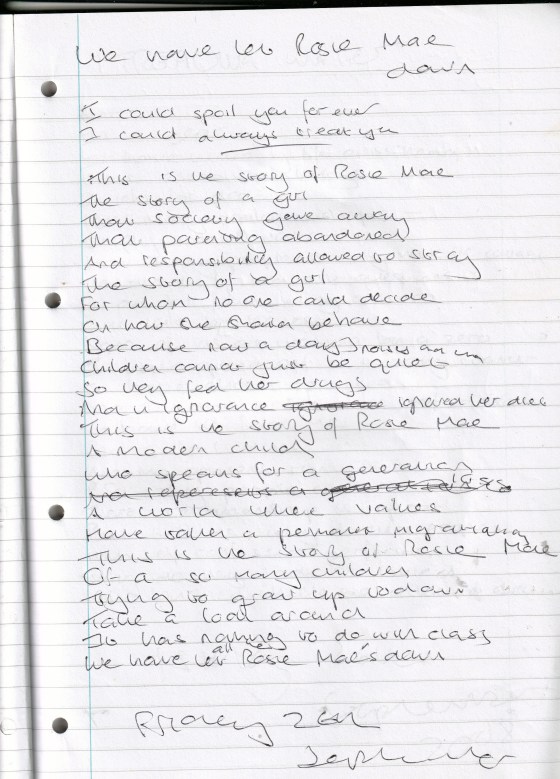 We have let Rosie Mae
down
I could spoil you for ever
I could always treat you
This is the story of Rosie Mae
The story of a girl
That society gave away
That parenting abandoned
And responsibility allowed to stray
The story of a girl
For whom no one could decide
On how she should behave
Because now a days
Children cannot just be quiet
So they fed her drugs
And in ignorance ignored her diet
This is the story of Rosie Mae
A modern child
Who speaks for a generation
A world where values
Have taken a permanent migration
This is the story of Rosie Mae
Of a so many children
Trying to grow up today
Take a look around
It has nothing to do with class
We have all let Rosie Mae's down
Friday 2
September